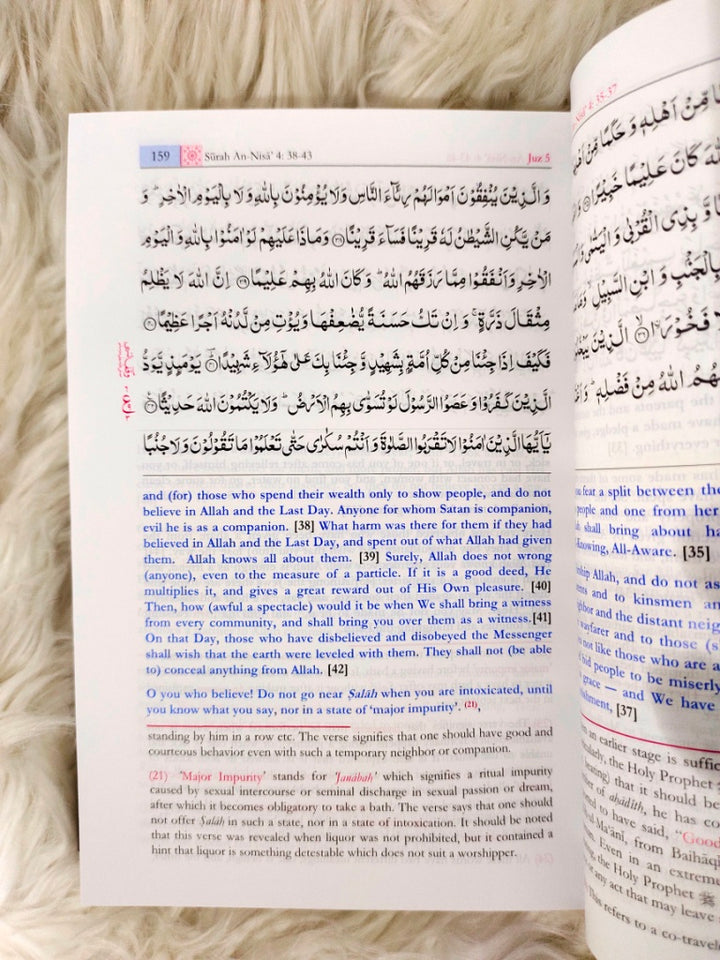 159 Sūrah An-Nisā' 4: 38-43 Juz 5
وَالَّذِيْنَ يُنْفِقُوْنَ اَمْوَالَهُمْ رِئَآءَ النَّاسِ وَلَا يُؤْمِنُوْنَ بِاللّٰهِ وَلَا بِالْيَوْمِ الْاٰخِرِ ؕ وَ
مَنْ يَّكُنِ الشَّيْطٰنُ لَهٗ قَرِيْنًا فَسَآءَ قَرِيْنًا ﴿۳۸﴾ وَمَاذَا عَلَيْهِمْ لَوْ اٰمَنُوْا بِاللّٰهِ وَالْيَوْمِ
الْاٰخِرِ وَاَنْفَقُوْا مِمَّا رَزَقَهُمُ اللّٰهُ ؕ وَكَانَ اللّٰهُ بِهِمْ عَلِيْمًا ﴿۳۹﴾ اِنَّ اللّٰهَ لَا يَظْلِمُ
مِثْقَالَ ذَرَّةٍ ۚ وَاِنْ تَكُ حَسَنَةً يُّضٰعِفْهَا وَيُؤْتِ مِنْ لَّدُنْهُ اَجْرًا عَظِيْمًا ﴿۴۰﴾
فَكَيْفَ اِذَا جِئْنَا مِنْ كُلِّ اُمَّةٍۭ بِشَهِيْدٍ وَّجِئْنَا بِكَ عَلٰى هٰٓؤُلَآءِ شَهِيْدًا ﴿۴۱﴾ يَوْمَئِذٍ يَّوَدُّ
الَّذِيْنَ كَفَرُوْا وَعَصَوُا الرَّسُوْلَ لَوْ تُسَوّٰى بِهِمُ الْاَرْضُ ؕ وَلَا يَكْتُمُوْنَ اللّٰهَ حَدِيْثًا ﴿۴۲﴾
يٰۤاَيُّهَا الَّذِيْنَ اٰمَنُوْا لَا تَقْرَبُوا الصَّلٰوةَ وَاَنْتُمْ سُكٰرٰى حَتّٰى تَعْلَمُوْا مَا تَقُوْلُوْنَ وَلَا جُنُبًا
and (for) those who spend their wealth only to show people, and do not
believe in Allah and the Last Day. Anyone for whom Satan is companion,
evil he is as a companion. [38] What harm was there for them if they had
believed in Allah and the Last Day, and spent out of what Allah had given
them. Allah knows all about them. [39] Surely, Allah does not wrong
(anyone), even to the measure of a particle. If it is a good deed, He
multiplies it, and gives a great reward out of His Own pleasure. [40]
Then, how (awful a spectacle) would it be when We shall bring a witness
from every community, and shall bring you over them as a witness.[41]
On that Day, those who have disbelieved and disobeyed the Messenger
shall wish that the earth were leveled with them. They shall not (be able
to) conceal anything from Allah. [42]
O you who believe! Do not go near Ṣalāh when you are intoxicated, until
you know what you say, nor in a state of 'major impurity'. (21),
standing by him in a row etc. The verse signifies that one should have good and
courteous behavior even with such a temporary neighbor or companion.
(21) 'Major Impurity' stands for 'Janābah' which signifies a ritual impurity
caused by sexual intercourse or seminal discharge in sexual passion or dream,
after which it becomes obligatory to take a bath. The verse says that one should
not offer Ṣalāh in such a state, nor in a state of intoxication. It should be noted
that this verse was revealed when liquor was not prohibited, but it contained a
hint that liquor is something detestable which does not suit a worshipper.
4: 35-37
مِّنْ اَهْلِهٖ وَحَكَمًا مِّنْ
كَانَ عَلِيْمًا خَبِيْرًا
وَّبِذِى الْقُرْبٰى وَالْيَتٰمٰى
بِالْجَنْۢبِ وَابْنِ السَّبِيْلِ
فَخُوْرَا الَّذِيْنَ
اللّٰهُ مِنْ فَضْلِهٖ
fear a split between the
people and one from her
shall bring about
Knowing, All-Aware. [35]
Allah, and do not
and to kinsmen
and the distant
wayfarer and to those
not like those who are
bid people to be miserly
grace — and We have
[37]
an earlier stage is
the Holy Prophet
that it should be
of aḥādīth, he has
to have said, "Good
from
Even in an extreme
the Holy Prophet ﷺ
or any act that may leave
This refers to a